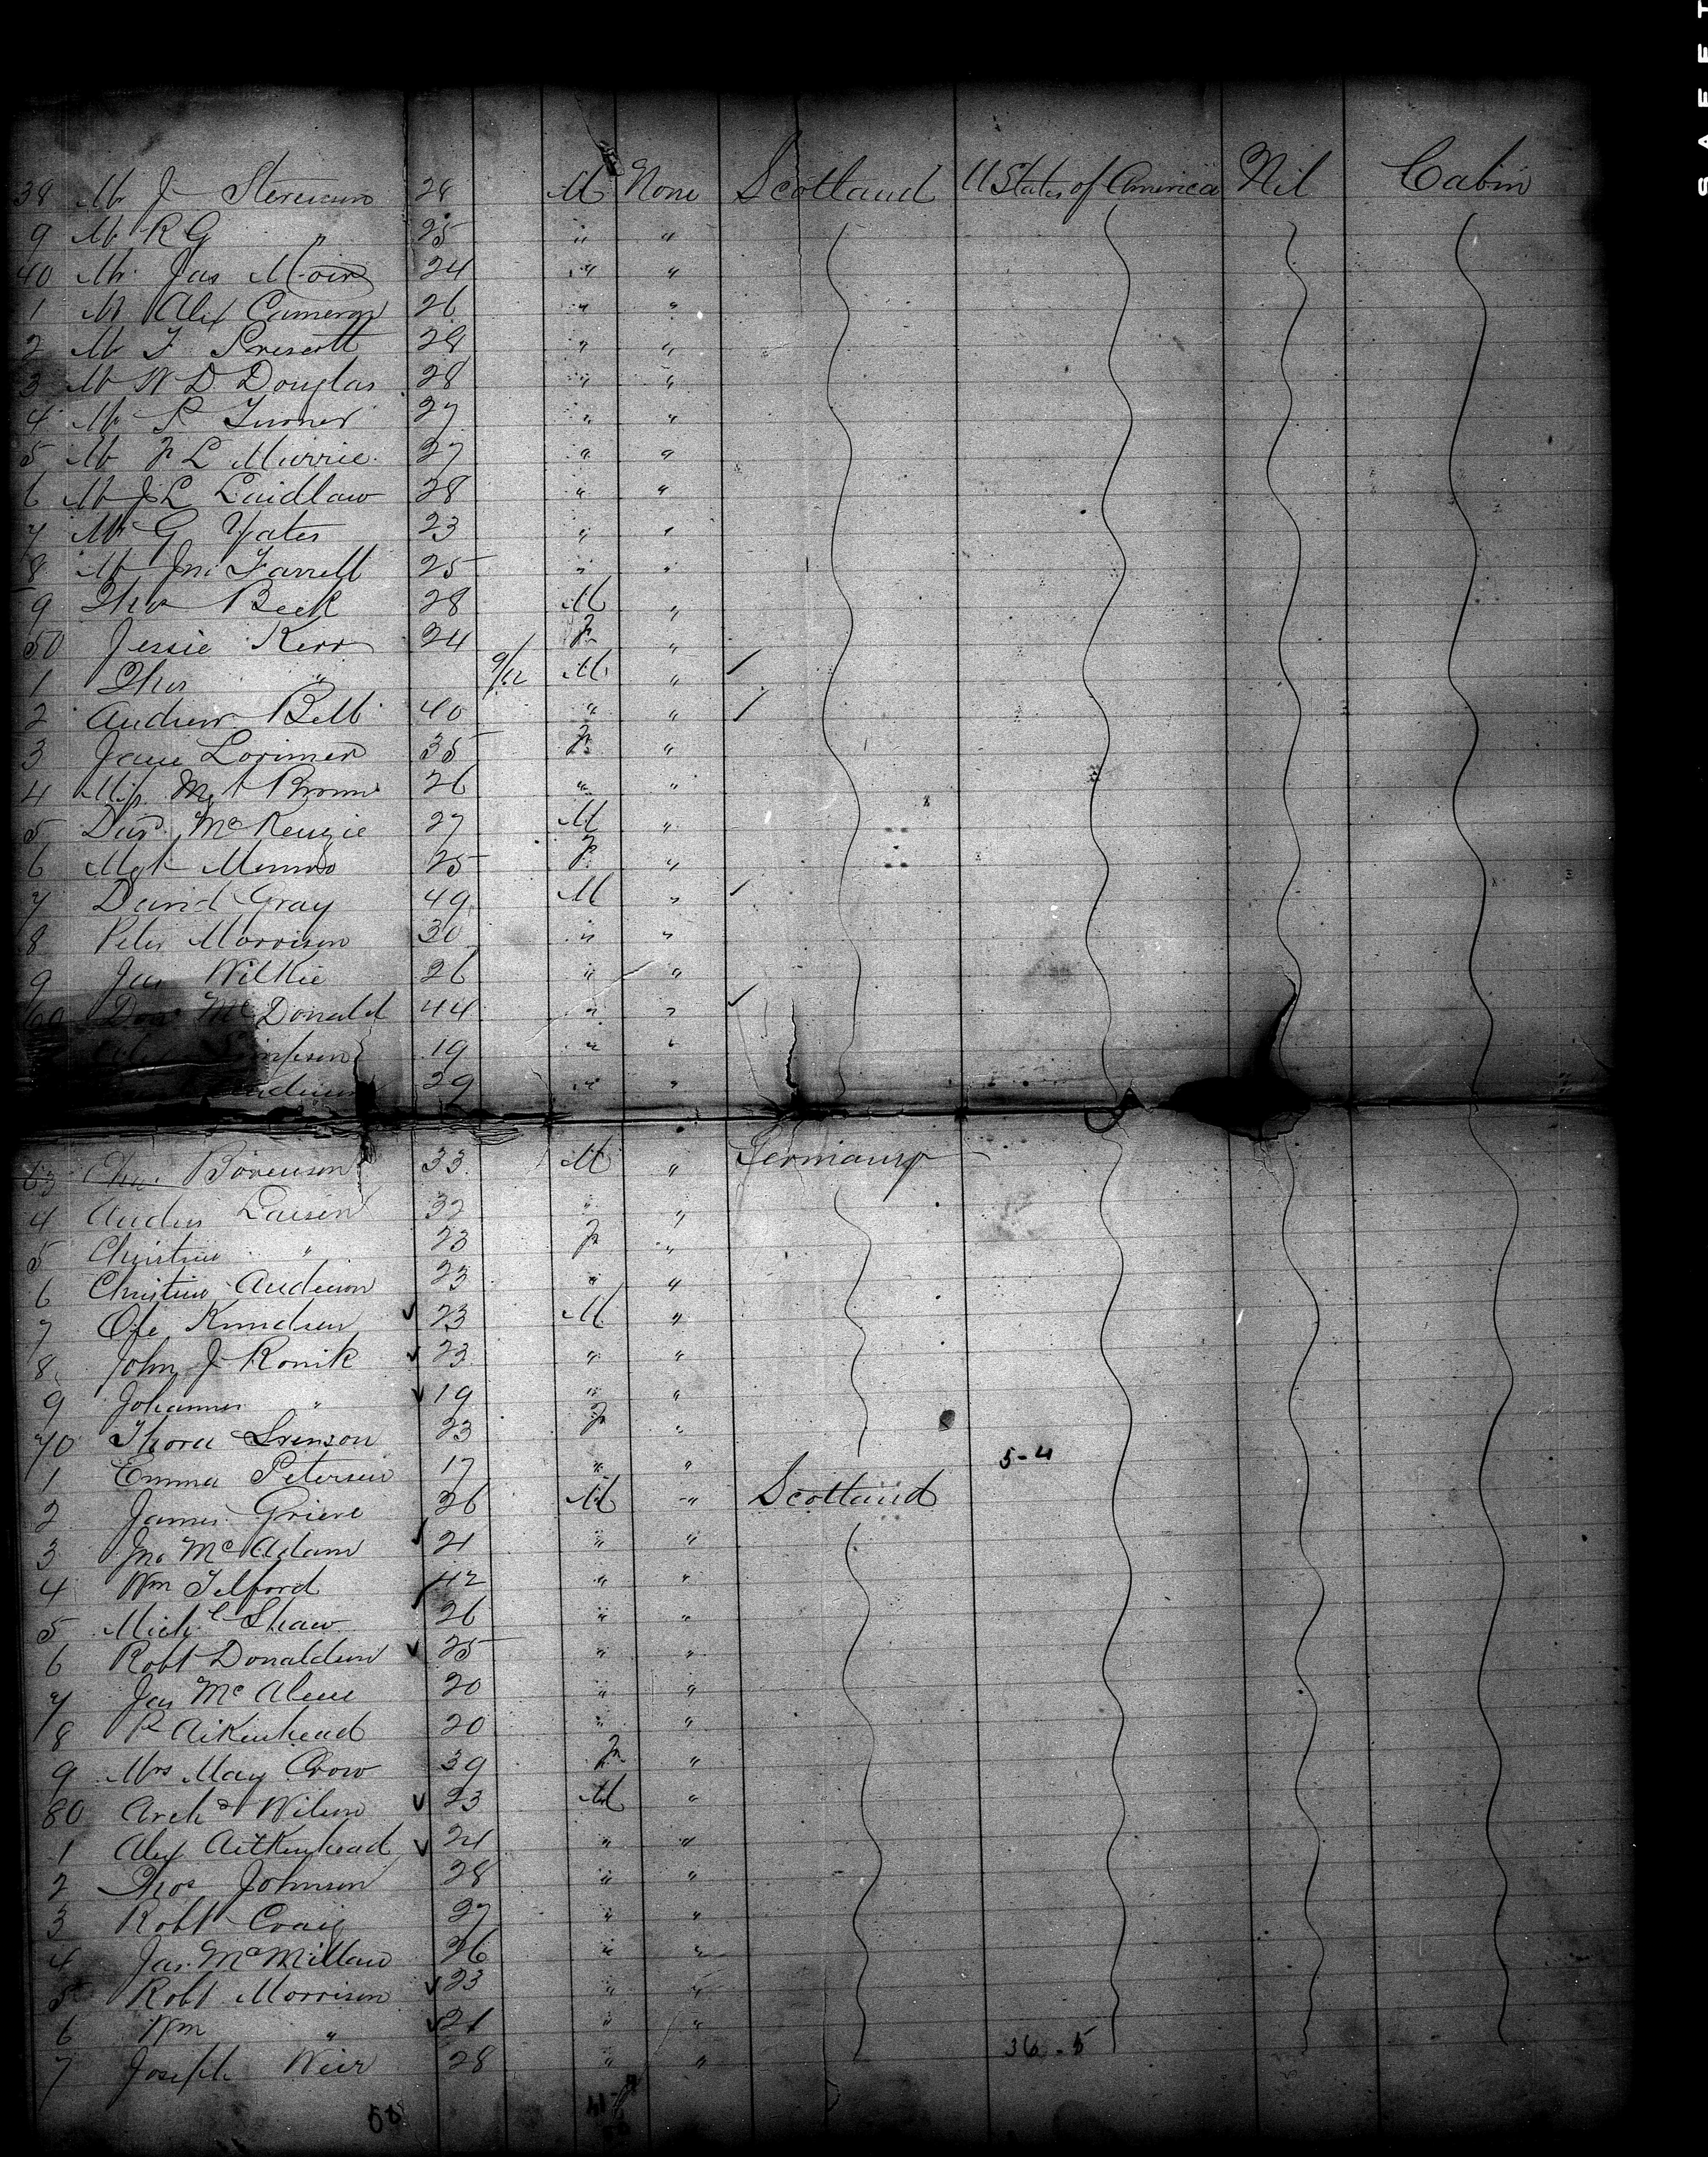 38 Mr J Stevenson 28 M None Scotland U States of America Nil Cabin
9 Mr R G " 25 " "
40 Mr Jas Moir 24 " "
1 Mr Alex Cameron 26 " "
2 Mr F Prescott 28 " "
3 Mr W D Douglas 28 " "
4 Mr Turner 27 " "
5 Mr L Murrie 27 " "
6 Mr J L Laidlaw 28 " "
7 Mr G Yates 23 " "
8 Mr Jno Farrell 25 " "
9 Thos Beck 28 M "
50 Jessie Kerr 24 F "
1 Thos " 9/12 M "
2 Andrew Bell 40 " "
3 Jane Lorimer 35 F "
4 Miss Mgt Brown 26 " "
5 Davd McKenzie 27 M "
6 Mgt Munro 25 F "
7 David Gray 49 M "
8 Peter Morrison 30 " "
9 Jas Wilkie 26 " "
60 McDonald 44 " "
19 " "
29 " "
63 Sorenson 33 M " Germany
4 Andrus Larsen 32 " "
5 Christine " 23 F "
6 Christine Anderson 23 " "
7 Ole Knudsen 23 M "
8 John J Konik 23 " "
9 Johannes " 19 " "
70 Thora Svenson 23 F "
1 Emma Petersen 17 " " 5-4
2 James Grieve 26 M " Scotland
3 Jno McAdam 21 " "
4 Wm Telford 42 " "
5 Michl Shaw 26 " "
6 Robt Donaldson 25 " "
7 Jas 20 " "
8 R Aikenhead 20 " "
9 Mrs May Crow 39 F "
80 Archd Wilson 23 M "
1 Alex Aitkenhead 24 " "
2 Thos Johnson 28 " "
3 Robt Craig 27 " "
4 Jas McMillan 26 " "
5 Robt Morrison 23 " "
6 Wm " 21 " "
36-5
7 Joseph Weir 28 " "
58
SAFET